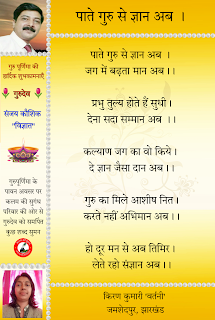 पाते गुरु से ज्ञान अब ।
गुरु पूर्णिमा की
हार्दिक शुभकामनाएँ
गुरुदेव
संजय कौशिक
"विज्ञात"
गुरुपूर्णिमा के
पावन अवसर पर
कलम की सुगंध
परिवार की ओर से
गुरुदेव को समर्पित
कुछ शब्द सुमन
पाते गुरु से ज्ञान अब ।
जग में बढ़ता मान अब ।।
प्रभु तुल्य होते हैं सुधी ।
देना सदा सम्मान अब ।।
कल्याण जग का वो किये ।
दे ज्ञान जैसा दान अब ।।
गुरु का मिले आशीष नित ।
करते नहीं अभिमान अब ।।
हो दूर मन से अब तिमिर ।
लेते रहो संज्ञान अब ।।
किरण कुमारी 'वर्तनी'
जमशेदपुर, झारखंड